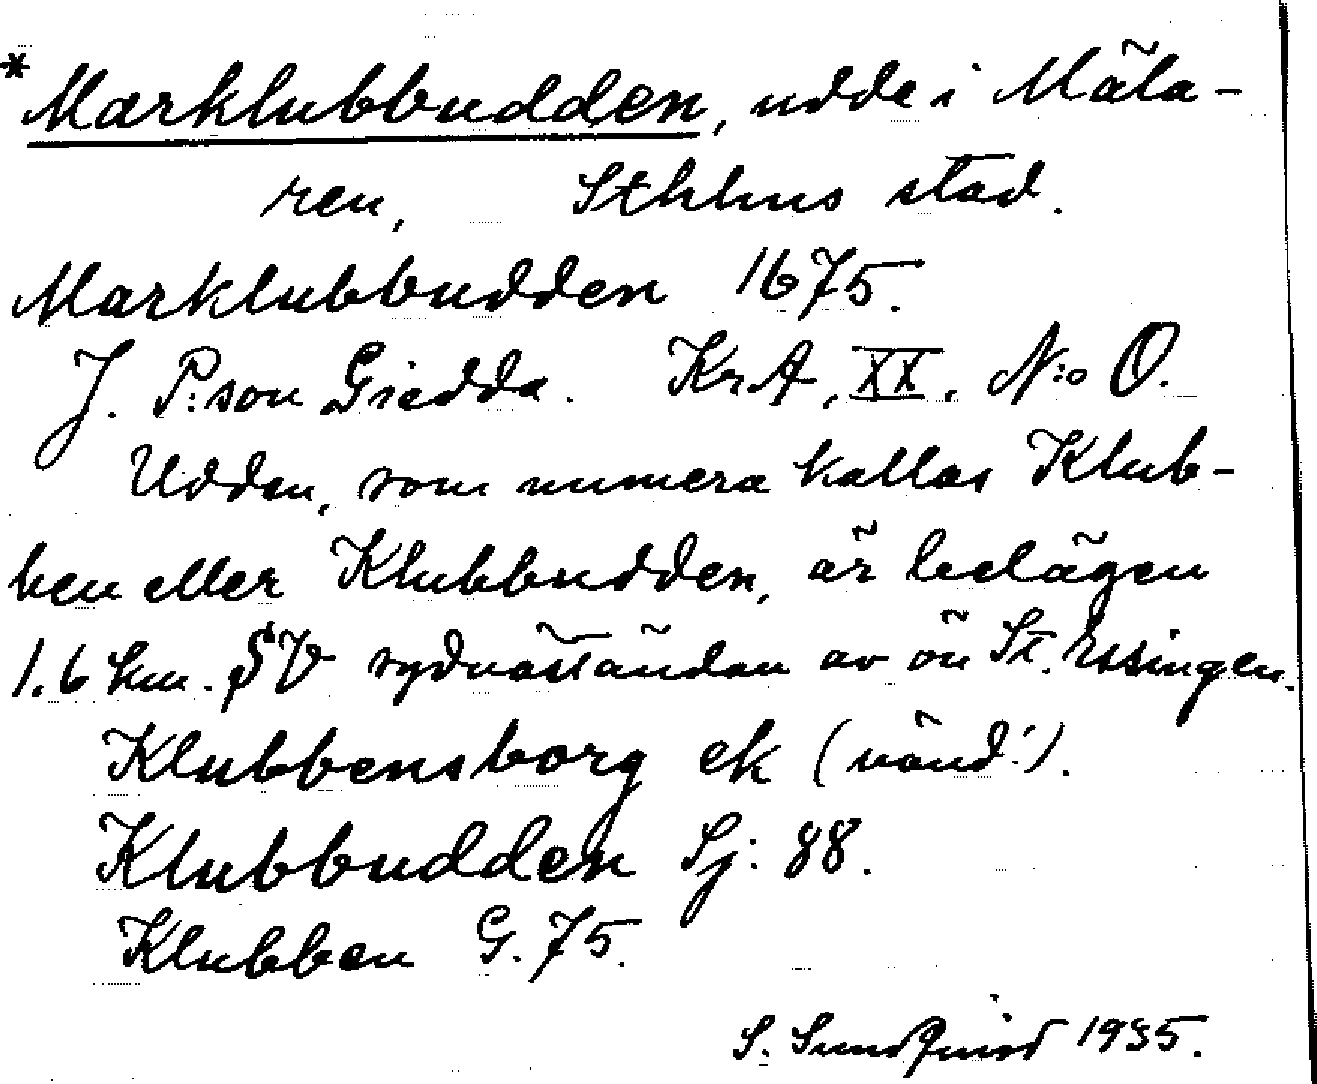 *Marklubbudden, udde i Mäla-
ren, Sthlms stad.
Marklubbudden 1675.
J. P:son Giedda. KrA, XX, N:o O.
Udden, som numera kallas Klub-
ben eller Klubbudden, är belägen
1.6 km. SV sydväständan av ön St. Essingen.
Klubbensborg ek (vänd!).
Klubbudden Sj: 88.
Klubben G. 75.
S. Sundquist 1935.